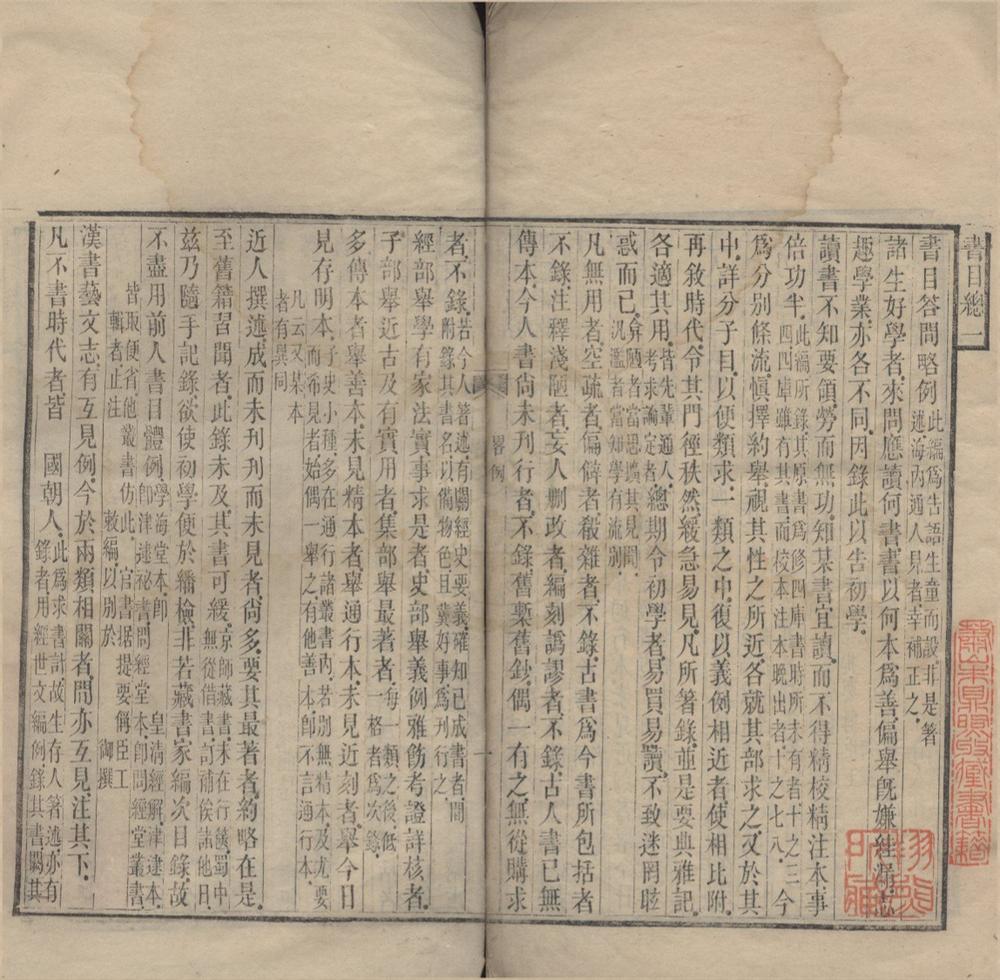 書目總一
書目答問略例此編爲告語生童而設非是著
述海內通人見者幸補正之
諸生好學者來問應讀何書書以何本爲善偏舉旣嫌絓漏志
趣學業亦各不同因錄此以告初學
讀書不知要領勞而無功知某書宜讀而不得精校精注本事
倍功半此編所錄其原書爲修四庫書時所未有者十之三今
四庫雖有其書而校本注本晚出者十之七八
爲分別條流愼擇約舉視其性之所近各就其部求之又於其
中詳分子目以便類求一類之中復以義例相近者使相比附
再敘時代令其門徑秩然緩急易見凡所著錄並是要典雅記
各適其用皆先輩通人
考求論定者總期令初學者易買易讀不致迷罔眩
惑而已弇陋者當思擴其見聞
汎濫者當知學有流別
凡無用者空疏者偏僻者殽雜者不錄古書爲今書所包括者
不錄注釋淺陋者妄人刪改者編刻譌謬者不錄古人書已無
傳本今人書尙未刊行者不錄舊槧舊鈔偶一有之無從購求
畧例
一
者不錄若今人著述有關經史要義確知已成書者間
附錄其書名以備物色且冀好事爲刊行之
經部舉學有家法實事求是者史部舉義例雅飭考證詳核者
子部舉近古及有實用者集部舉最著者每一類之後低
一格者爲次錄
多傳本者舉善本未見精本者舉通行本未見近刻者舉今日
見存明本子史小種多在通行諸叢書內若別無精本及尤要
而希見者始偶一舉之有他善本卽不言通行本
凡云又某本
者有異同
近人撰述成而未刊刊而未見者尙多要其最著者約略在是
至舊籍習聞者此錄未及其書可緩京師藏書未在行篋蜀中
無從借書訂補俟諸他日
茲乃隨手記錄欲使初學便於繙檢非若藏書家編次目錄故
不盡用前人書目體例學海堂本卽皇淸經解津逮本
卽津逮祕書問經堂本卽問經堂叢書
皆取便省他叢書仿此官書據提要偁臣工
編輯者止注敕編以別於御撰
漢書藝文志有互見例今於兩類相關者間亦互見注其下
凡不書時代者皆國朝人此爲求書計故生存人著述亦有
錄者用經世文編例錄其書闕其